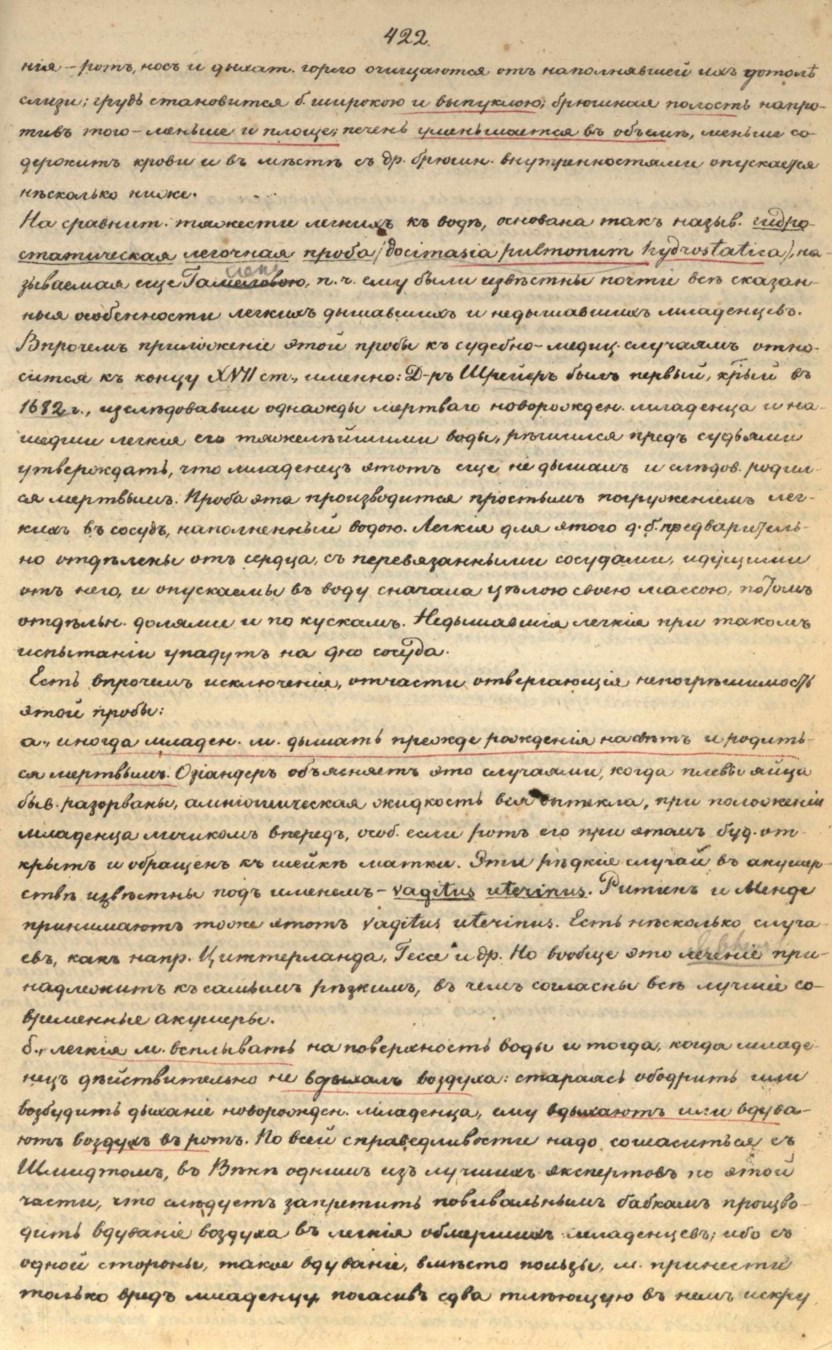 422.
нія – ротъ, носъ и дыхат. горло очищаются отъ наполнявшей ихъ дотолѣ
слизи; грудь становится б. широкою и выпуклою; брюшная полость напро-
тивъ того – меньше и площе; печень уменьшается въ объемѣ, меньше со-
держитъ крови и въ мѣстѣ съ др. брюшн. внутренностями опускается
нѣсколько ниже.
На сравнит. тяжести легкихъ къ водѣ, основана такъ назыв. гидро-
статическая легочная проба /docimasia pulmonum hydrostatica/, на-
зываемая еще Галеновою, п. ч. ему были извѣстны почти всѣ сказан-
ныя особенности легкихъ дышавшихъ и недышавшихъ младенцевъ.
Впрочемъ приложеніе этой пробы къ судебно-медиц. случаямъ отно-
сится къ концу XVII ст., именно: Д-ръ Шрейеръ былъ первый, крый въ
1682 г., изслѣдовавши однажды мертваго новорожден. младенца и на-
шедши легкія его тяжелѣйшими воды, рѣшился предъ судьями
утверждать, что младенецъ этотъ еще не дышалъ и слѣдов. родил-
ся мертвымъ. Проба эта производится простымъ погруженіемъ лег-
кихъ въ сосудъ, наполненный водою. Легкія для этого д. б. предваритель-
но отдѣлены отъ сердца, съ перевязанными сосудами, идущими
отъ него, и опускаемы въ воду сначала цѣлою своею массою, потомъ
отдѣльн. долями и по кускамъ. Недышавшія легкія при такомъ
испытаніи упадутъ на дно сосуда.
Есть впрочемъ исключенія, отчасти отвергающія непогрѣшимость
этой пробы:
а., иногда младен. м. дышать прежде рожденія на свѣтъ и родить-
ся мертвымъ. Озіандеръ объясняетъ это случаями, когда плевы яйца
быв. разорваны, амніотическая жидкость вся вытекла, при положеніи
младенца личикомъ впередъ, особ. если ротъ его при этомъ буд. от-
крытъ и обращенъ къ шейкѣ матки. Эти рѣдкіе случаи въ акушер-
ствѣ извѣстны подъ именемъ – vagitus uterinus. Ритгенъ и Менде
принимаютъ тоже этотъ vagitus uterinus. Есть нѣсколько случа-
евъ, какъ напр. Циттерланда, Гессе и др. Но вообще это леченіе при-
надлежитъ къ самымъ рѣзкимъ, въ чемъ согласны всѣ лучшіе со-
временные акушеры.
б., легкія м. всплывать на поверхность воды и тогда, когда младе-
нецъ дѣйствительно не вдыхалъ воздуха: стараясь ободрить или
возбудить дыханіе новорожден. младенца, ему вдыхаютъ или вдува-
ютъ воздухъ въ ротъ. По всей справедливости надо согласиться съ
Шмидтомъ, въ Вѣнѣ однимъ изъ лучшихъ экспертовъ по этой
части, что слѣдуетъ запретить повивальнымъ бабкамъ произво-
дить вдуваніе воздуха въ легкія обмершихъ младенцевъ; ибо съ
одной стороны, такое вдуваніе, вмѣсто пользы, м. принести
только вредъ младенцу, погасивъ едва тлѣющую въ немъ искру